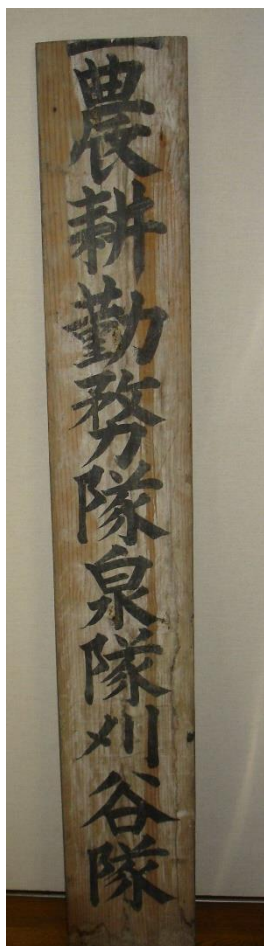 一農耕勤務隊泉隊刈谷隊